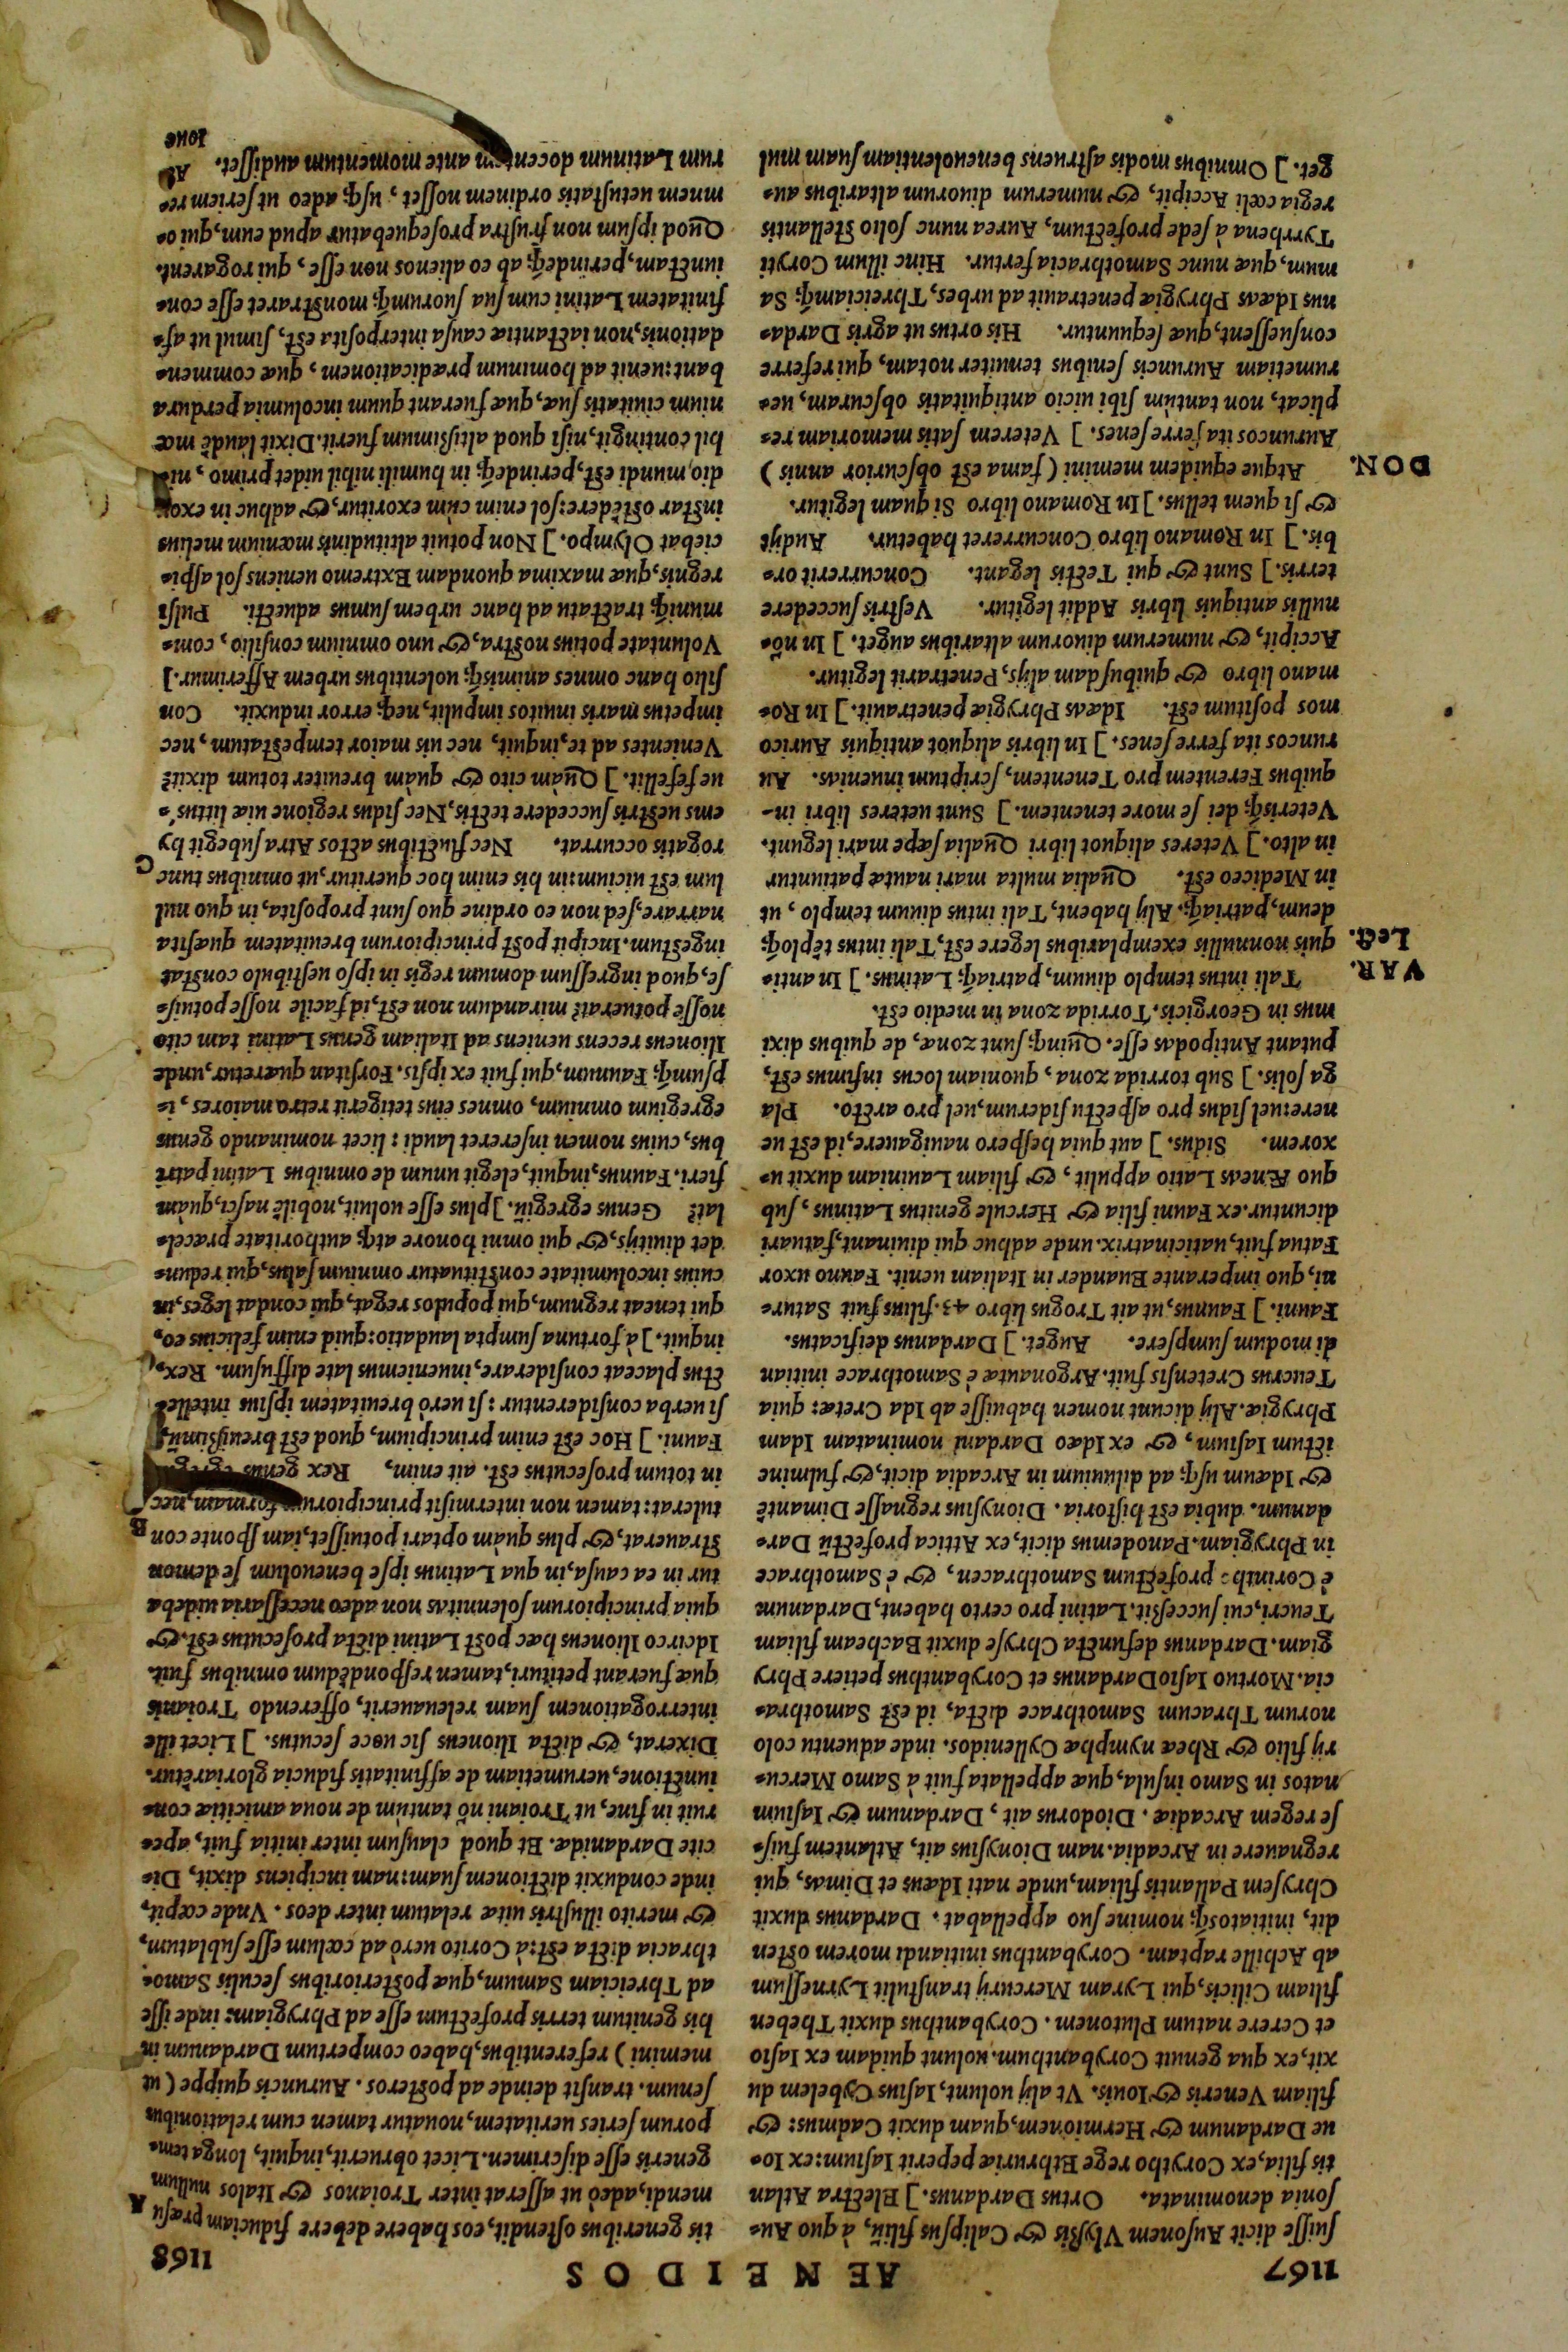 1167
AENEIDOS
1168
fuiſſe dicit Auſonem Vlyſsis & Calipſus filiũ, à quo Au-
ſonia denominata. Ortus Dardanus.] Electra Atlan
tis filia, ex Corytho rege Ethruriæ peperit Iaſium: ex Io-
ue Dardanum & Hermionem, quam duxit Cadmus: &
filiam Veneris & Iouis. Vt alij uolunt, Iaſius Cybelem du
xit, ex qua genuit Corybanthum. uolunt quidam ex Iaſio
et Cerere natum Plutonem. Corybanthus duxit Theben
filiam Cilicis, qui Lyram Mercurij tranſtulit Lyrneſſum
ab Achille raptam. Corybanthus initiandi morem oſten
dit, initiatosq́; nomine ſuo appellabat. Dardanus duxit
Chryſem Pallantis filiam, unde nati Idæus et Dimas, qui
regnauere in Arcadia. nam Dionyſius ait, Atlantem fuiſ-
ſe regem Arcadiæ. Diodorus ait, Dardanum & Iaſium
natos in Samo inſula, quæ appellata fuit à Samo Mercu-
rij filio & Rheæ nymphæ Cyllenidos. inde aduentu colo
norum Thracum Samothrace dicta, id eſt Samothra-
cia. Mortuo Iaſio Dardanus et Corybanthus petiere Phry
giam. Dardanus defuncta Chryſe duxit Bacheam filiam
Teucri, cui ſucceſsit. Latini pro certo habent, Dardanum
è Corintho profectum Samothracen, & è Samothrace
in Phrygiam. Panodemus dicit, ex Attica profectũ Dar-
danum. dubia eſt hiſtoria. Dionyſius regnaſſe Dimantẽ
& Idæum uſq; ad diluuium in Arcadia dicit, & fulmine
ictum Iaſium, & ex Idæo Dardani nominatam Idam
Phrygiæ. Alij dicunt nomen habuiſſe ab Ida Cretæ: quia
Teucrus Cretenſis fuit. Argonautæ è Samothrace initian
di modum ſumpſere. Auget.] Dardanus deificatus.
Fauni.] Faunus, ut ait Trogus libro 43. filius fuit Satur-
ni, quo imperante Euander in Italiam uenit. Fauno uxor
Fatua fuit, uaticinatrix. unde adhuc qui diuinant, fatuari
dicuntur. ex Fauni filia & Hercule genitus Latinus, ſub
quo Æneas Latio appulit, & filiam Lauiniam duxit u-
xorem. Sidus.] aut quia heſpero nauigauere, id eſt ue
nere: uel ſidus pro aſpectu ſiderum, uel pro arcto. Pla
ga ſolis.] Sub torrida zona, quoniam locus infimus eſt,
putant Antipodas eſſe. Quinq; ſunt zonæ, de quibus dixi
mus in Georgicis. Torrida zona in medio eſt.
VAR. Lect.
Tali intus templo diuum, patriaq́; Latinus.] In anti-
quis nonnullis exemplaribus legere eſt, Tali intus tẽploq́;
deum, patriaq́;. Alij habent, Tali intus diuum templo, ut
in Mediceo eſt. Qualia multa mari nautæ patiuntur
in alto.] Veteres aliquot libri Qualia ſæpe mari legunt.
Veterisq́; dei ſe more tenentem.] Sunt ueteres libri in-
quibus Ferentem pro Tenentem, ſcriptum inuenias. Au
runcos ita ferre ſenes.] In libris aliquot antiquis Aurico
mos poſitum eſt. Idæas Phrygiæ penetrauit.] In Ro-
mano libro & quibuſdam alijs, Penetrarit legitur.
Accipit, & numerum diuorum altaribus auget.] In nõ-
nullis antiquis libris Addit legitur. Veſtris ſuccedere
terris.] Sunt & qui Tectis legant. Concurrerit or-
bis.] In Romano libro Concurreret habetur. Audijt
& ſi quem tellus.] In Romano libro Si quam legitur.
DON.
Atque equidem memini (fama eſt obſcurior annis)
Auruncos ita ferre ſenes.] Veterem ſatis memoriam re-
plicat, non tantùm ſibi uicio antiquitatis obſcuram, ue-
rumetiam Auruncis ſenibus tenuiter notam, qui referre
conſueſſent, quæ ſequuntur. His ortus ut agris Darda-
nus Idæas Phrygiæ penetrauit ad urbes, Threiciamq́; Sa
mum, quæ nunc Samothracia fertur. Hinc illum Coryti
Tyrrhena à ſede profectum, Aurea nunc ſolio ſtellantis
regia cœli Accipit, & numerum diuorum altaribus au-
get.] Omnibus modis aſtruens beneuolentiam ſuam mul
tis generibus oſtendit, eos habere debere fiduciam præſu
A
mendi, adeò ut aſſerat inter Troianos & Italos nullum
generis eſſe diſcrimen. Licet obruerit, inquit, longa tem-
porum ſeries ueritatem, nouatur tamen cum relationibus
ſenum. tranſit deinde ad poſteros. Auruncis quippe (ut
memini) referentibus, habeo compertum Dardanum in
his genitum terris profectum eſſe ad Phrygiam: inde iſſe
ad Threiciam Samum, quæ poſterioribus ſeculis Samo-
thracia dicta eſt: à Corito uerò ad cœlum eſſe ſublatum,
& merito illuſtris uitæ relatum inter deos. Vnde cœpit,
inde conduxit dictionem ſuam: nam incipiens dixit, Di-
cite Dardanidæ. Et quod clauſum inter initia fuit, ape-
ruit in fine, ut Troiani nõ tantum de noua amicitiæ con-
iunctione, uerumetiam de affinitatis fiducia gloriarẽtur.
Dixerat, & dicta Ilioneus ſic uoce ſecutus.] Licet ille
interrogationem ſuam releuauerit, offerendo Troianis
quæ fuerant petituri, tamen reſpondẽdum omnibus fuit.
Idcirco Ilioneus hæc poſt Latini dicta proſecutus eſt. &
quia principiorum ſolennitas non adeo neceſſaria uideba
tur in ea cauſa, in qua Latinus ipſe beneuolum ſe demon
ſtrauerat, & plus quàm optari potuiſſet, iam ſponte con
B
tulerat: tamen non intermiſit principiorum formam, nec
in totum proſecutus eſt. ait enim, Rex genus
Fauni.] Hoc eſt enim principium, quod eſt breuiſsimũ,
ſi uerba conſiderentur: ſi uerò breuitatem ipſius intelle-
ctus placeat conſiderare, inueniemus late diffuſum. Rex,
inquit.] à fortuna ſumpta laudatio: quid enim felicius eo,
qui teneat regnum, qui populos regat, qui condat leges, in
cuius incolumitate conſtituatur omnium ſalus, qui redun-
det diuitijs, & qui omni honore atq; authoritate præcel-
lat? Genus egregiũ.] plus eſſe uoluit, nobilẽ naſci, quàm
fieri. Faunus, inquit, elegit unum de omnibus Latini patri
bus, cuius nomen inſereret laudi: licet nominando genus
egregium omnium, omnes eius tetigerit retro maiores, i-
pſumq́; Faunum, qui fuit ex ipſis. Forſitan quæretur, unde
Ilioneus recens ueniens ad Italiam genus Latini tam cito
noſſe potuerat? mirandum non eſt, id facile noſſe potuiſ-
ſe, quod ingreſſum domum regis in ipſo ueſtibulo conſtat
ingeſtum. Incipit poſt principiorum breuitatem quæſita
narrare, ſed non eo ordine quo ſunt propoſita, in quo nul
lum eſt uicium: in his enim hoc queritur, ut omnibus tunc
C
rogatis occurrat. Nec fluctibus actos Atra ſubegit hy
ems ueſtris ſuccedere tectis, Nec ſidus regione uiæ littus-
ue fefellit.] Quàm cito & quàm breuiter totum dixit?
Venientes ad te, inquit, nec uis maior tempeſtatum, nec
impetus maris inuitos impulit, neq; error induxit. Con
ſilio hanc omnes animisq́; uolentibus urbem Afferimur.]
Voluntate potius noſtra, & uno omnium conſilio, com-
muniq́; tractatu ad hanc urbem ſumus aduecti. Pulſi
regnis, quæ maxima quondam Extremo ueniens ſol aſpi-
ciebat Olympo.] Non potuit altitudinis mœnium melius
inſtar oſtẽdere: ſol enim cùm exoritur, & adhuc in exor
dio mundi eſt, perindeq́; in humili nihil uidet primo, ni-
hil cõntingit, niſi quod altiſsimum fuerit. Dixit laudẽ mœ
nium ciuitatis ſuæ, quæ fuerant quum incolumia perdura
bant: uenit ad hominum prædicationem, quæ commen-
dationis, non iactantiæ cauſa interpoſita eſt, ſimul ut af-
finitatem Latini cum ſua ſuorumq́; monſtraret eſſe con-
iunctam, perindeq́; ab eo alienos non eſſe, qui rogarent.
Quod ipſum non fruſtra proſequebatur apud eum, qui o-
mnem uetuſtatis ordinem noſſet, uſq; adeo ut ſeriem re-
rum Latinum docentem ante momentum audiſſet. Ab
Ioue